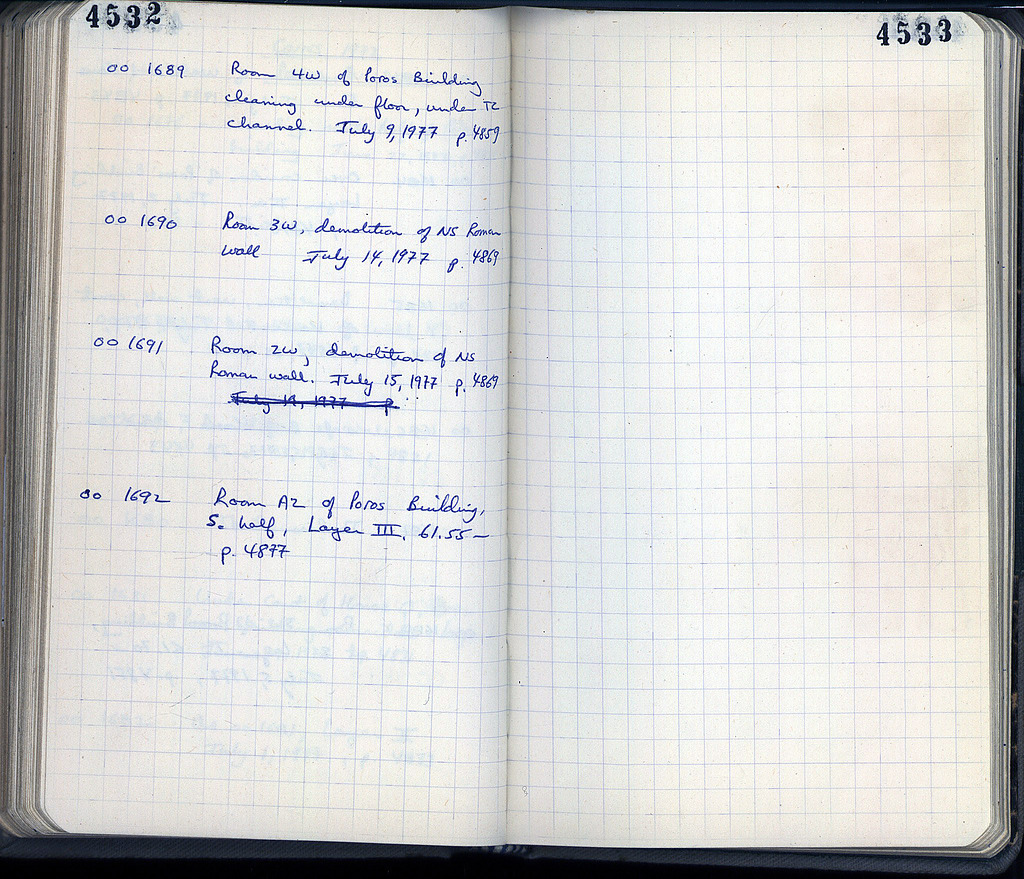 4532
OO 1689 Room 4W of Poros Building
cleaning under floor, under TC
channel. July 9, 1977 p. 4859
OO 1690 Room 3W, demolition of NS Roman
wall July 14, 1977 p. 4869
OO 1691 Room 2W, demolition of NS
Roman wall. July 15, 1977 p. 4869
July 14, 1977 p.
OO 1692 Room A2 of Poros Building,
S. half, Layer III. 61.55 –
p. 4877
4533